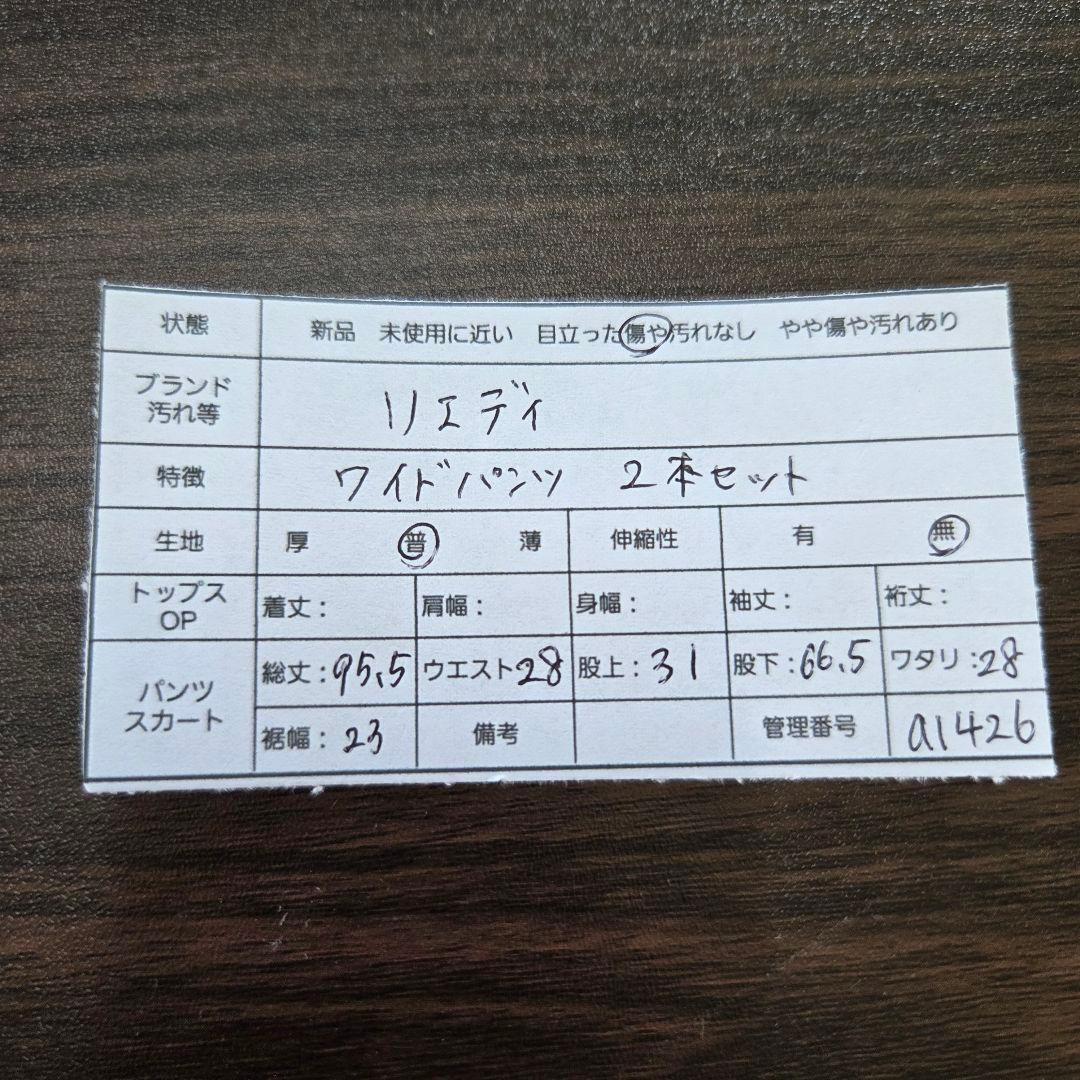 状態 新品 未使用に近い 目立った傷や汚れなし やや傷や汚れあり
ブランド
汚れ等 リエディ
特徴 ワイドパンツ 2本セット
生地 厚 普 薄 伸縮性 有 無
トップス
OP 着丈: 肩幅: 身幅: 袖丈: 裄丈:
パンツ
スカート 総丈:95.5 ウエスト28 股上:31 股下:66.5 ワタリ:28
裾幅:23 備考 管理番号 a1426